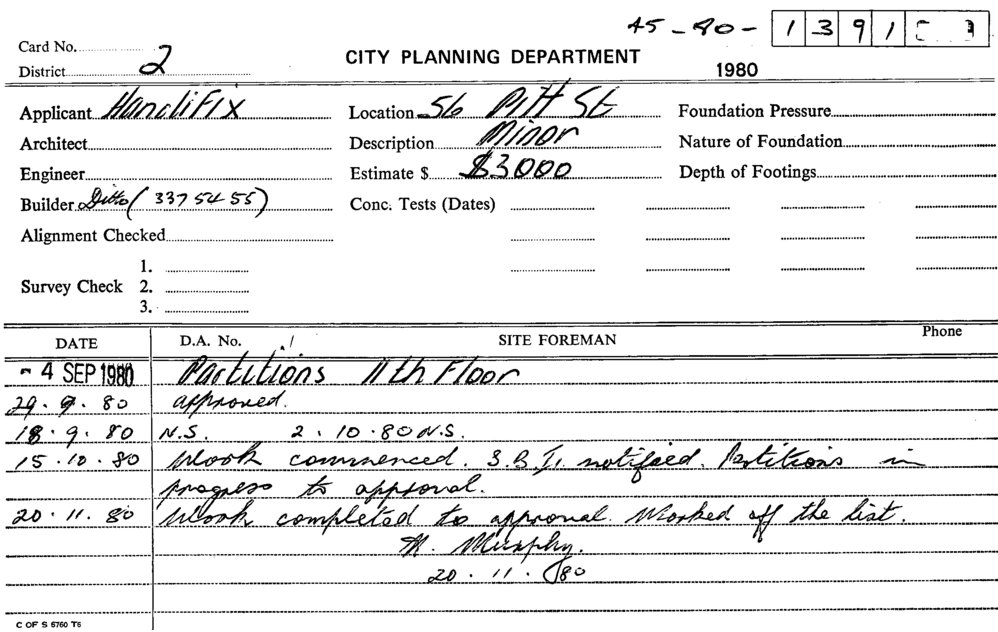 45-80- 1391
Card No.
District 2
CITY PLANNING DEPARTMENT
1980
Applicant HandiFix
Location 56 Pitt St
Foundation Pressure
Architect
Description Minor
Nature of Foundation
Engineer
Estimate $ $3000
Depth of Footings
Builder Ditto (337 54 55)
Conc. Tests (Dates)
Alignment Checked
1.
Survey Check 2.
3.
DATE D.A. No. SITE FOREMAN Phone
- 4 SEP 1980 Partitions 11th Floor
29.9.80 approved.
18.9.80 N.S. 2.10.80 N.S.
15.10.80 Work commenced. notified. Partitions in
progress to approval.
20.11.80 Work completed to approval. Worked off the list.
M. Murphy.
20.11.80
C OF S 6760 T6